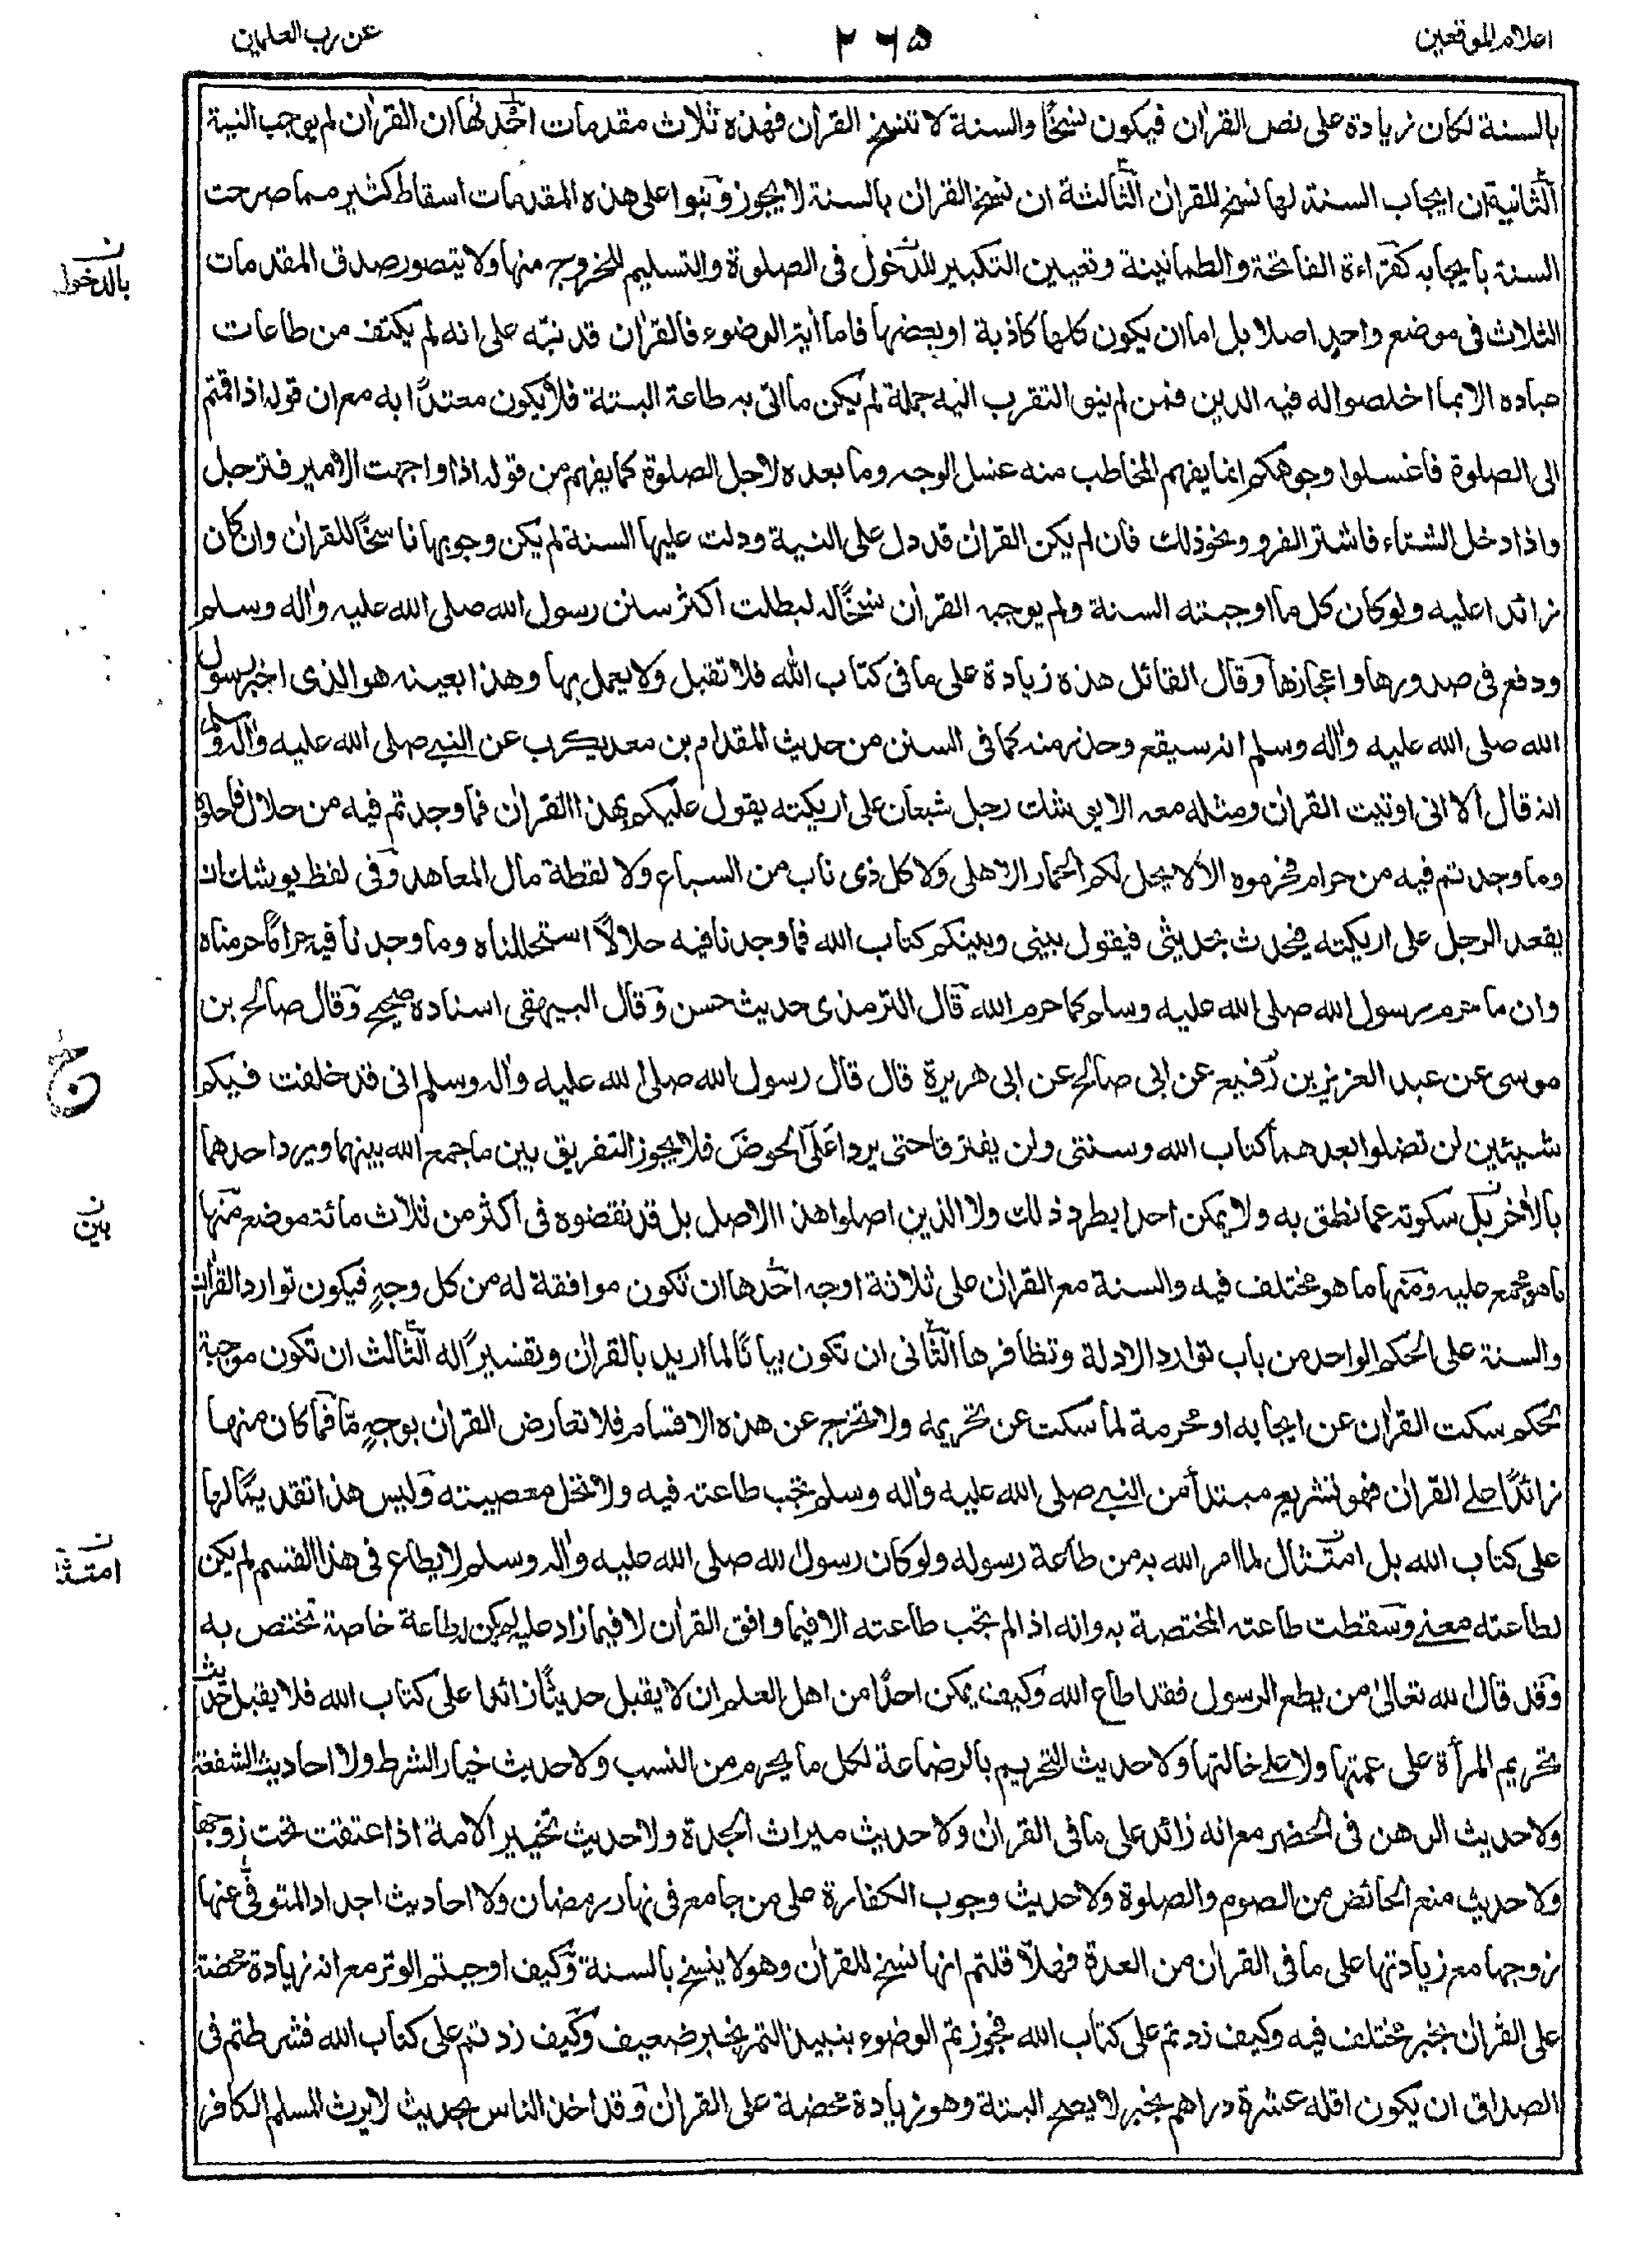 اعلام الموقعين
٢٦٥
عن رب العلمين
بالسنة لكان زيادة على نص القرأن فيكون نسخًا والسنة لا تنسخ القرأن فهذه ثلاث مقدمات احدٰها ان القرأن لم يوجب النية
الثانية ان ايجاب السنة لها نسخ للقرأن الثالثة ان نسخ القرأن بالسنة لا يجوز وبنوا على هذه المقدمات اسقاط كثير مما صرحت
السنة بايجابه كقراءة الفاتحة والطمانينة وتعيين التكبير للدخول فى الصلوة والتسليم للخروج منها ولا يتصور صدق المقدمات
الثلاث فى موضع واحد اصلا بل اما ان يكون كلها كاذبة او بعضها فاما أية الوضوء فالقرأن قد نبّه على انه لم يكتف من طاعات
عباده الا بما اخلصوا له فيه الدين فمن لم ينو التقرب اليه جملة لم يكن ما اتى به طاعة البتة فلا يكون معتدًا به مع ان قوله اذا قمتم
الى الصلوة فاغسلوا وجوهكم انما يفهم المخاطب منه غسل الوجه وما بعده لاجل الصلوة كما يفهم من قوله اذا واجهت الامير فترجل
واذا دخل الشتاء فاشتر الفرو ونحو ذلك فان لم يكن القرأن قد دل على النية ودلت عليها السنة لم يكن وجوبها ناسخًا للقرأن وان كان
زائدا عليه ولو كان كل ما اوجبته السنة ولم يوجبه القرأن نسخًا له لبطلت اكثر سنن رسول الله صلى الله عليه وأله وسلم
ودفع فى صدورها واعجازها وقال القائل هذه زيادة على ما فى كتاب الله فلا تقبل ولا يعمل بها وهذا بعينه هو الذى اخبر رسول
الله صلى الله عليه وأله وسلم انه سيقع وحذر منه كما فى السنن من حديث المقدام بن معديكرب عن النبے صلى الله عليه وأله وسلم
انه قال ألا انى اوتيت القرأن ومثله معه الا يوشك رجل شبعان على اريكته يقول عليكم بهذا القرأن فما وجدتم فيه من حلال فاحلوه
وما وجدتم فيه من حرام فحرموه الا لا يحل لكم الحمار الاهلى ولا كل ذى ناب من السباع ولا لقطة مال المعاهد وفى لفظ يوشك ان
يقعد الرجل على اريكته فيحدث بحديثى فيقول بينى وبينكم كتاب الله فما وجدنا فيه حلالاً استحللناه وما وجدنا فيه حرامًا حرمناه
وان ما حرم رسول الله صلى الله عليه وسلم كما حرم الله قال الترمذى حديث حسن وقال البيهقى اسناده صحيح وقال صالح بن
موسى عن عبد العزيز بن رفيع عن ابى صالح عن ابى هريرة قال قال رسول الله صلى الله عليه وأله وسلم انى قد خلفت فيكم
شيئين لن تضلوا بعدهما كتاب الله وسنتى ولن يفترقا حتى يردا على الحوض فلا يجوز التفريق بين ما جمع الله بينهما ويرد احدهما
بالأخر بل سكوته عما نطق به ولا يمكن احدا يطرد ذلك ولا الذين اصلوا هذا الاصل بل قد نقضوه فى اكثر من ثلاث مائة موضع منها
ما هو مجمع عليه ومنها ما هو مختلف فيه والسنة مع القرأن على ثلاثة اوجه احدها ان تكون موافقة له من كل وجهٍ فيكون توارد القرأن
والسنة على الحكم الواحد من باب توارد الادلة وتظافرها الثانى ان تكون بيانًا لما اريد بالقرأن وتفسيرًا له الثالث ان تكون موجبة
لحكم سكت القرأن عن ايجابه او محرمة لما سكت عن تحريمه ولا تخرج عن هذه الاقسام فلا تعارض القرأن بوجهٍ مّا فما كان منها
زائدًا علے القرأن فهو تشريع مبتدأ من النبے صلى الله عليه وأله وسلم تجب طاعته فيه ولا تحل معصيته وليس هذا تقديمًا لها
على كتاب الله بل امتثال لما امر الله به من طاعة رسوله ولو كان رسول الله صلى الله عليه وأله وسلم لا يطاع فى هذا القسم لم يكن
لطاعته معنے وسقطت طاعته المختصة به وانه اذا لم تجب طاعته الا فيما وافق القرأن لا فيما زاد عليه لم يكن له طاعة خاصة تختص به
وقد قال الله تعالىٰ من يطع الرسول فقد اطاع الله وكيف يمكن احدًا من اهل العلم ان لا يقبل حديثًا زائدا على كتاب الله فلا يقبل حديث
تحريم المرأة على عمتها ولا علے خالتها ولا حديث التحريم بالرضاعة لكل ما يحرم من النسب ولا حديث خيار الشرط ولا احاديث الشفعة
ولا حديث الرهن فى الحضر مع انه زائد على ما فى القرأن ولا حديث ميراث الجدة ولا حديث تخيير الامة اذا عتقت تحت زوجها
ولا حديث منع الحائض من الصوم والصلوة ولا حديث وجوب الكفارة على من جامع فى نهار رمضان ولا احاديث احداد المتوفى عنها
زوجها مع زيادتها على ما فى القرأن من العدة فهلّا قلتم انها نسخ للقرأن وهو لا ينسخ بالسنة وكيف اوجبتم الوتر مع انه زيادة محضة
على القرأن بخبر مختلف فيه وكيف زدتم على كتاب الله فجوزتم الوضوء بنبيذ التمر بخبر ضعيف وكيف زدتم على كتاب الله فشرطتم فى
الصداق ان يكون اقله عشرة دراهم بخبر لا يصح البتة وهو زيادة محضة على القرأن وقد اخذ الناس بحديث لا يرث المسلم الكافر
ن
بالدخول
ن
بين
ن
امتثالا